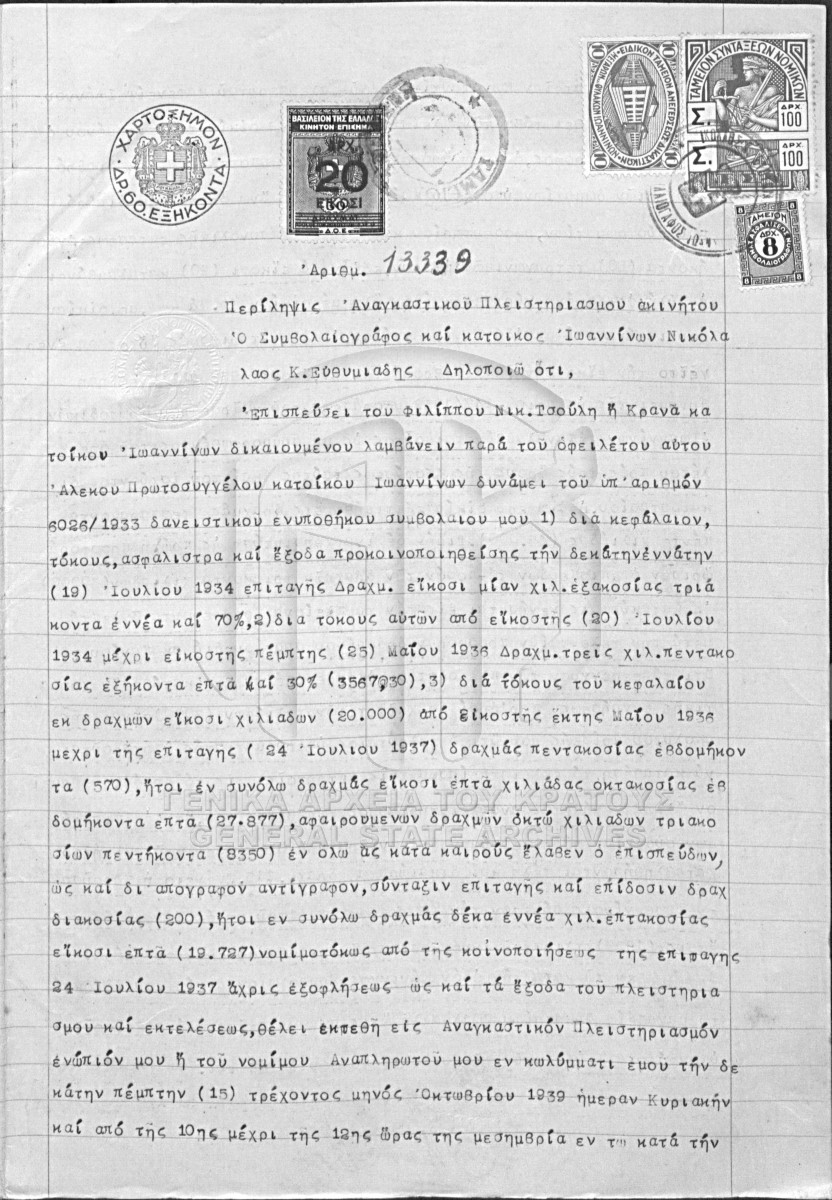 ΧΑΡΤΟΣΗΜΟΝ
ΔΡ. 60. ΕΞΗΚΟΝΤΑ
ΒΑΣΙΛΕΙΟΝ ΤΗΣ ΕΛΛΑΔΟΣ
ΚΙΝΗΤΟΝ ΕΠΙΣΗΜΑ
20
ΕΙΚΟΣΙ
Δ.Ο.Ε.
ΤΑΜΕΙΟΝ ΣΥΝΤΑΞΕΩΝ ΝΟΜΙΚΩΝ
Σ. ΔΡΧ. 100
Σ. ΔΡΧ. 100
ΤΑΜΕΙΟΝ
ΔΡΧ. 8
Ἀριθμ. 13339
Περίληψις Ἀναγκαστικοῦ Πλειστηριασμου ἀκινήτου
Ὁ Συμβολαιογράφος καί κατοικος Ἰωαννίνων Νικόλα
λαος Κ.Εὐθυμιαδης Δηλοποιῶ ὅτι,
Ἐπισπεύσει του Φιλίππου Νικ.Τσούλη ἤ Κρανᾶ κα
τοίκου Ἰωαννίνων δικαιουμένου λαμβάνειν παρά τοῦ ὀφειλέτου αὐτου
Ἀλεκου Πρωτοσυγγέλου κατοίκου Ἰωαννίνων δυνάμει τοῦ ὑπ'αριθμόν
6026/1933 δανειστικοῦ ἐνυποθήκου συμβολαιου μου 1) διά κεφάλαιον,
τόκους,ασφάλιστρα καί ἔξοδα προκοινοποιηθείσης τήν δεκάτηνἐννάτην
(19) Ἰουλίου 1934 ἐπιταγῆς Δραχμ. εἴκοσι μίαν χιλ.ἑξακοσίας τριά
κοντα ἐννέα καί 70%,2)δια τόκους αὐτών από εἰκοστῆς (20) Ἰουλίου
1934 μέχρι εἰκοστῆς πέμπτης (25) Μαΐου 1936 Δραχμ.τρεῖς χιλ.πεντακο
σίας ἑξήκοντα ἑπτά καί 30% (3567,30),3) διά τόκους τοῦ κεφαλαίου
εκ δραχμών εἴκοσι χιλιάδων (20.000) από εἰκοστῆς ἕκτης Μαΐου 1936
μεχρι τῆς ἐπιταγῆς ( 24 Ἰουλιου 1937) δραχμάς πεντακοσίας ἑβδομήκον
τα (570),ἤτοι ἐν συνόλω δραχμάς εἴκοσι ἑπτά χιλιάδας οκτακοσίας ἑβ
δομήκοντα ἑπτά (27.877),αφαιρουμενων δραχμών ὀκτώ χιλιαδων τριακο
σίων πεντήκοντα (8350) ἐν ὅλω ἅς κατα καιρούς ἔλαβεν ὁ ἐπισπεύδων,
ὡς καί δι'απογραφον αντίγραφον,σύνταξιν επιταγῆς καί ἐπίδοσιν δραχ
διακοσίας (200),ἤτοι εν συνόλω δραχμάς δέκα ἐννέα χιλ.ἑπτακοσίας
εἴκοσι ἑπτά (19.727)νομιμοτόκως από τῆς κοινοποιήσεως τῆς επιταγῆς
24 Ἰουλίου 1937 ἄχρις ἐξοφλήσεως ὡς καί τά ἔξοδα τοῦ πλειστηρια
σμοῦ καί εκτελέσεως,θέλει ἐκτεθῆ εἰς Αναγκαστικόν Πλειστηριασμόν
ἐνώπιόν μου ἤ τοῦ νομίμου Αναπληρωτοῦ μου εν κωλύμματι ἐμοῦ τήν δε
κάτην πέμπτην (15) τρέχοντος μηνός Ὀκτωβρίου 1939 ἡμεραν Κυριακήν
καί από τῆς 10ης μέχρι τῆς 12ης ὥρας τῆς μεσημβρία εν τω κατά τήν
ΓΕΝΙΚΑ ΑΡΧΕΙΑ ΤΟΥ ΚΡΑΤΟΥΣ
GENERAL STATE ARCHIVES